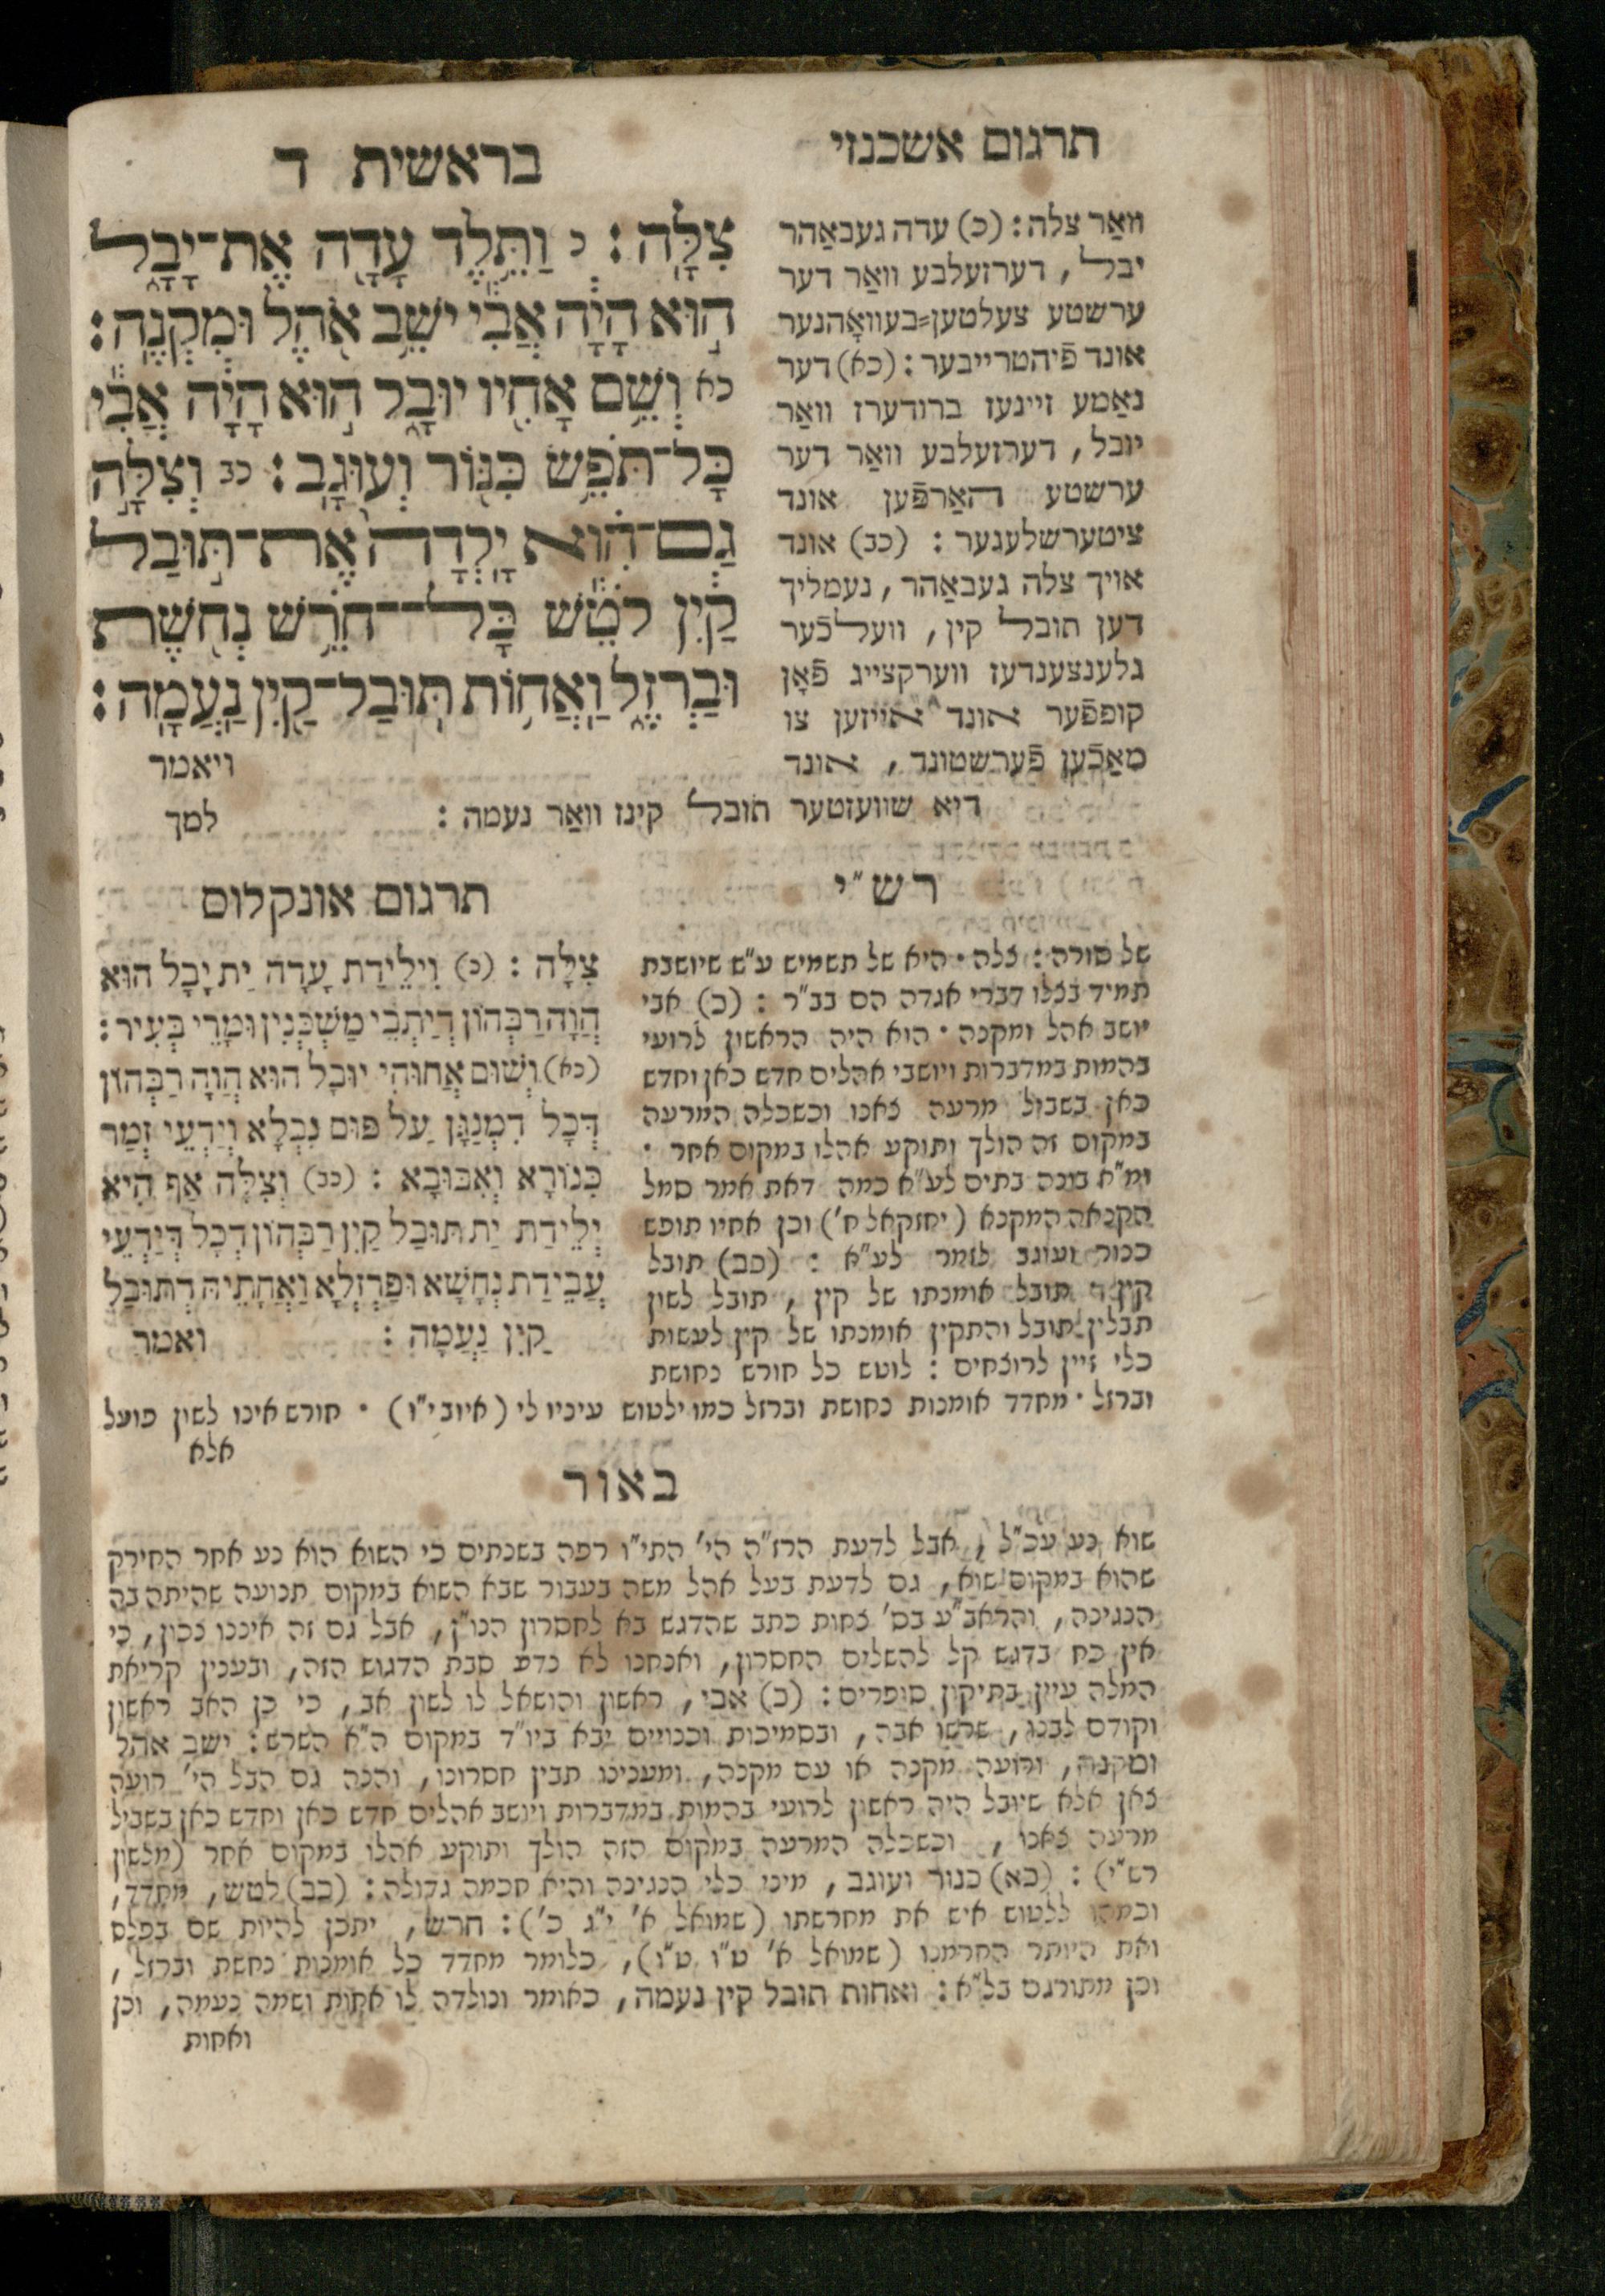 תרגום אשכנזי
בראשית ד
צִלָּֽה׃ כ וַתֵּ֥לֶד עָדָ֖ה אֶת־יָבָ֑ל
ה֣וּא הָיָ֔ה אֲבִ֕י יֹשֵׁ֥ב אֹ֖הֶל וּמִקְנֶֽה׃
כא וְשֵׁ֥ם אָחִ֖יו יוּבָ֑ל ה֣וּא הָיָ֔ה אֲבִ֕י
כָּל־תֹּפֵ֥שׂ כִּנּ֖וֹר וְעוּגָֽב׃ כב וְצִלָּ֣ה
גַם־הִ֗וא יָֽלְדָה֙ אֶת־תּ֣וּבַל
קַ֔יִן לֹטֵ֕שׁ כָּל־חֹרֵ֥שׁ נְחֹ֖שֶׁת
וּבַרְזֶ֑ל וַֽאֲח֥וֹת תּֽוּבַל־קַ֖יִן נַֽעֲמָֽה׃
ויאמר
למך
וואַר צלה: (כ) עדה געבאַהר
יבל, דערזעלבע וואַר דער
ערשטע צעלטען=בעוואָהנער
אונד פֿיהטרייבער: (כא) דער
נאַמע זיינעז ברודערז וואַר
יובל, דערזעלבע וואַר דער
ערשטע האַרפֿען אונד
ציטערשלעגער: (כב) אונד
אויך צלה געבאַהר, נעמליך
דען תובל קין, וועלכֿער
גלענצענדעז ווערקצייג פֿאָן
קופפֿער אונד אייזען צו
מאַכֿען פֿערשטונד, אונד
דיא שוועזטער תובל קינז וואַר נעמה:
רש"י
של סורה: צלה· היא של תשמיש ע"ש שיושבת
תמיד בצלו דברי אגדה הם בב"ר: (כ) אבי
יושב אהל ומקנה· הוא היה הראשון לרועי
בהמות במדברות ויושבי אהלים חדש כאן וחדש
כאן בשביל מרעה צאנו וכשכלה המרעה
במקום זה הולך ותוקע אהלו במקום אחר·
ומ"א בונה בתים לע"א כמה דאת אמר סמל
הקנאה המקנא (יחזקאל ח') וכן אחיו תופש
כנור ועוגב לזמר לע"א: (כב) תובל
קין· תובל אומנתו של קין, תובל לשון
תבלין תובל והתקין אומנתו של קין לעשות
כלי זיין לרוצחים: לוטש כל חורש נחושת
וברזל· מחדד אומנות נחושת וברזל כמו ילטוש עיניו לי (איוב י"ו)· חורש אינו לשון פועל
אלא
תרגום אונקלוס
צִלָּה: (כ) וִילֵידַת עָדָה יַת יָבָל הוּא
הֲוָה רַבְּהוֹן דְּיַתְבֵי מַשְׁכְּנִין וּמָרֵי בְּעִיר:
(כא) וְשׁוּם אֲחוּהִי יוּבָל הוּא הֲוָה רַבְּהוֹן
דְּכָל דִמְנַגָּן עַל פּוּם נִבְלָא וְיַדְעֵי זְמַר
כִּנוֹרָא וְאִבּוּבָא: (כב) וְצִלָּה אַף הִיא
יְלֵידַת יַת תּוּבַל קַיִן רַבְּהוֹן דְכָל דְּיַדְעֵי
עֲבִידַת נְחָשָׁא וּפַרְזְלָא וַאֲחָתֵיהּ דְתוּבַל
קַיִן נַעֲמָה:
ואמר
באור
שוא נע עכ"ל, אבל לדעת הרז"ה הי' התי"ו רפה בשנתים כי השוא הוא נע אחר החירק
שהוא במקום שוא, גם לדעת בעל אהל משה בעבור שבא השוא במקום תנועה שהיתה בה
הנגינה, והראב"ע בס' צחות כתב שהדגש בא לחסרון הנו"ן, אבל גם זה איננו נכון, כי
אין כח בדגש קל להשלים החסרון, ואנחנו לא נדע סבת הדגוש הזה, ובענין קריאת
המלה עיין בתיקון סופרים: (כ) אבי, ראשון והושאל לו לשון אב, כי כן האב ראשון
וקודם לבנו, שרשו אבה, ובסמיכות וכנויים יבא ביו"ד במקום ה"א השרש: ישב אהל
ומקנה, ורועה מקנה או עם מקנה, ומענינו תבין חסרונו, והנה גם הבל הי' רועה
צאן אלא שיובל היה ראשון לרועי בהמות במדברות ויושב אהלים חדש כאן וחדש כאן בשביל
מרעה צאנו, וכשכלה המרעה במקום הזה הולך ותוקע אהלו במקום אחר (מלשון
רש"י): (כא) כנור ועוגב, מיני כלי הנגינה והיא חכמה גדולה: (כב) לטש, מחדד,
וכמהו ללטוש איש את מחרשתו (שמואל א' י"ג כ'): חרש, יתכן להיות שם בפלס
ואת היותר החרמנו (שמואל א' ט"ו ט"ו), כלומר מחדד כל אומנות נחשת וברזל,
וכן מתורגם בל"א: ואחות תובל קין נעמה, כאומר ונולדה לו אחות ושמה נעמה, וכן
ואחות